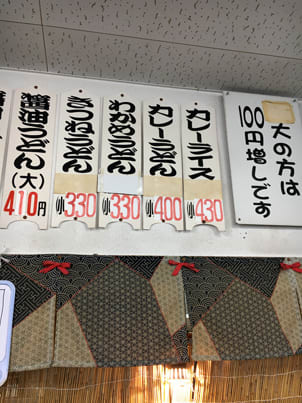 大の方は
100円増しです
カレーライス
小430
カレーうどん
小400
わかめうどん
小330
きつねうどん
小330
醤油うどん
(大)
410円